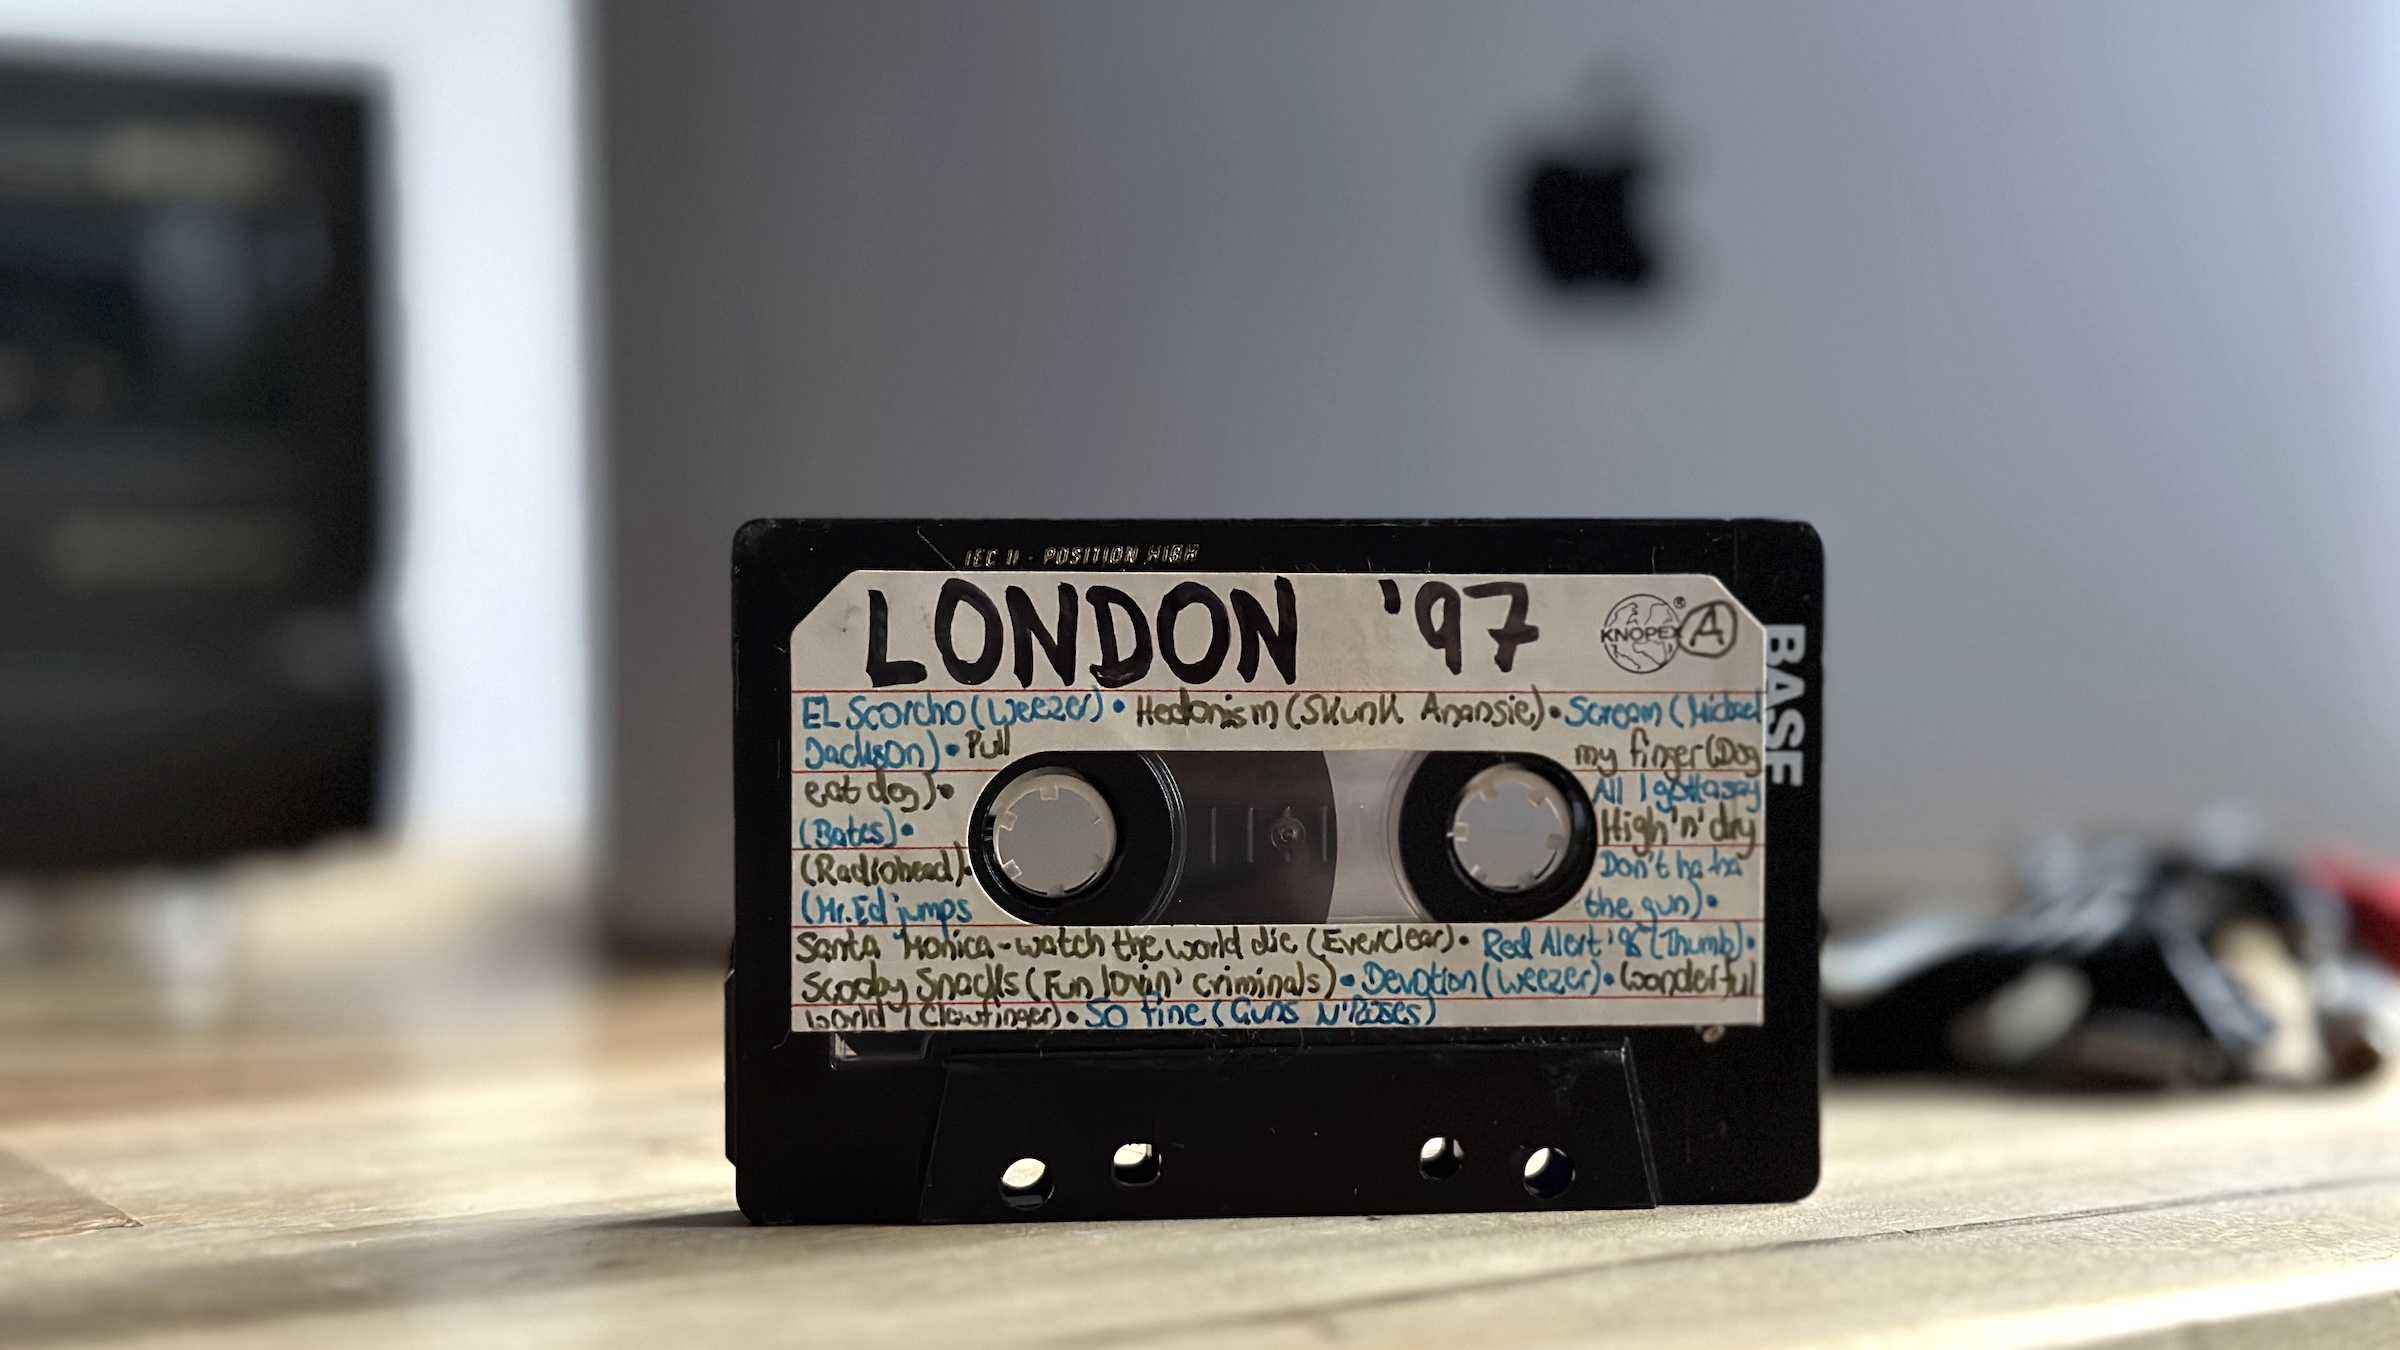 IEC II · POSITION HIGH
LONDON '97
KNOPEX ® A
BASF
EL Scorcho (Weezer) • Hedonism (Skunk Anansie) • Scream (Michael
Jackson) • Pull my finger (Dog
eat dog) • All I gotta say
(Bates) • High 'n' dry
(Radiohead) • Don't ha ha
(Mr. Ed jumps the gun) •
Santa Monica - watch the world die (Everclear) • Red Alert (Thumb) •
Scooby Snacks (Fun lovin' criminals) • Devotion (Weezer) • Wonderful
World (Clawfinger) • So fine (Guns N' Roses)